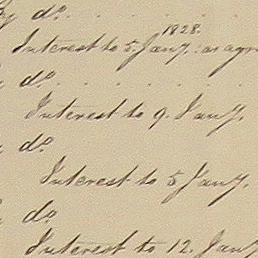 By do. . . . . . .
1828.
Interest to 5. Jany. as agre
do. . . . . . .
Interest to 9. Jany.
do.
Interest to 5 Jany.
do.
Interest to 12. Jany